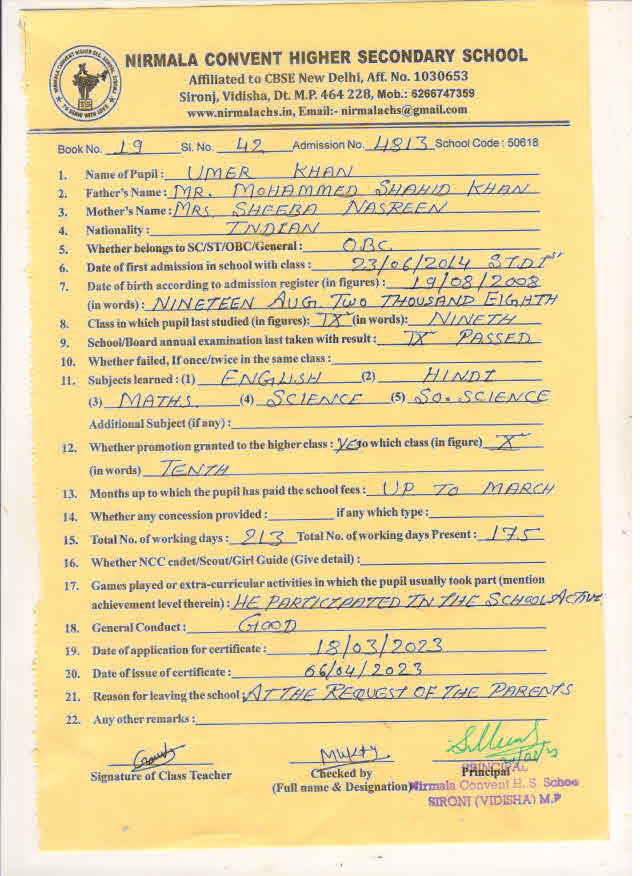 NIRMALA CONVENT HIGHER SECONDARY SCHOOL
Affiliated to CBSE New Delhi, Aff. No. 1030653
Sironj, Vidisha, Dt. M.P. 464 228, Mob.: 6266747359
www.nirmalachs.in, Email:- nirmalachs@gmail.com
Book No. 19 Sl. No. 42 Admission No. 4813 School Code : 50618
1. Name of Pupil : UMER KHAN
2. Father's Name : MR. MOHAMMED SHAHID KHAN
3. Mother's Name : MRS. SHEEBA NASREEN
4. Nationality : INDIAN
5. Whether belongs to SC/ST/OBC/General : OBC
6. Date of first admission in school with class : 23/06/2014 STD Ist
7. Date of birth according to admission register (in figures) : 19/08/2008
(in words) : NINETEEN AUG. TWO THOUSAND EIGHTH
8. Class in which pupil last studied (in figures): IX (in words): NINETH
9. School/Board annual examination last taken with result : IX PASSED
10. Whether failed, If once/twice in the same class :
11. Subjects learned : (1) ENGLISH (2) HINDI
(3) MATHS. (4) SCIENCE (5) SO. SCIENCE
Additional Subject (if any) :
12. Whether promotion granted to the higher class : YES to which class (in figure) X
(in words) TENTH
13. Months up to which the pupil has paid the school fees : UP TO MARCH
14. Whether any concession provided : if any which type :
15. Total No. of working days : 213 Total No. of working days Present : 175
16. Whether NCC cadet/Scout/Girl Guide (Give detail) :
17. Games played or extra-curricular activities in which the pupil usually took part (mention
achievement level therein) : HE PARTICIPATED IN THE SCHOOL ACTIVI
18. General Conduct : GOOD
19. Date of application for certificate : 18/03/2023
20. Date of issue of certificate : 06/04/2023
21. Reason for leaving the school : AT THE REQUEST OF THE PARENTS
22. Any other remarks :
Signature of Class Teacher Checked by Principal
(Full name & Designation)
PRINCIPAL
Nirmala Convent H. S. Schoo
SIRONJ (VIDISHA) M.P